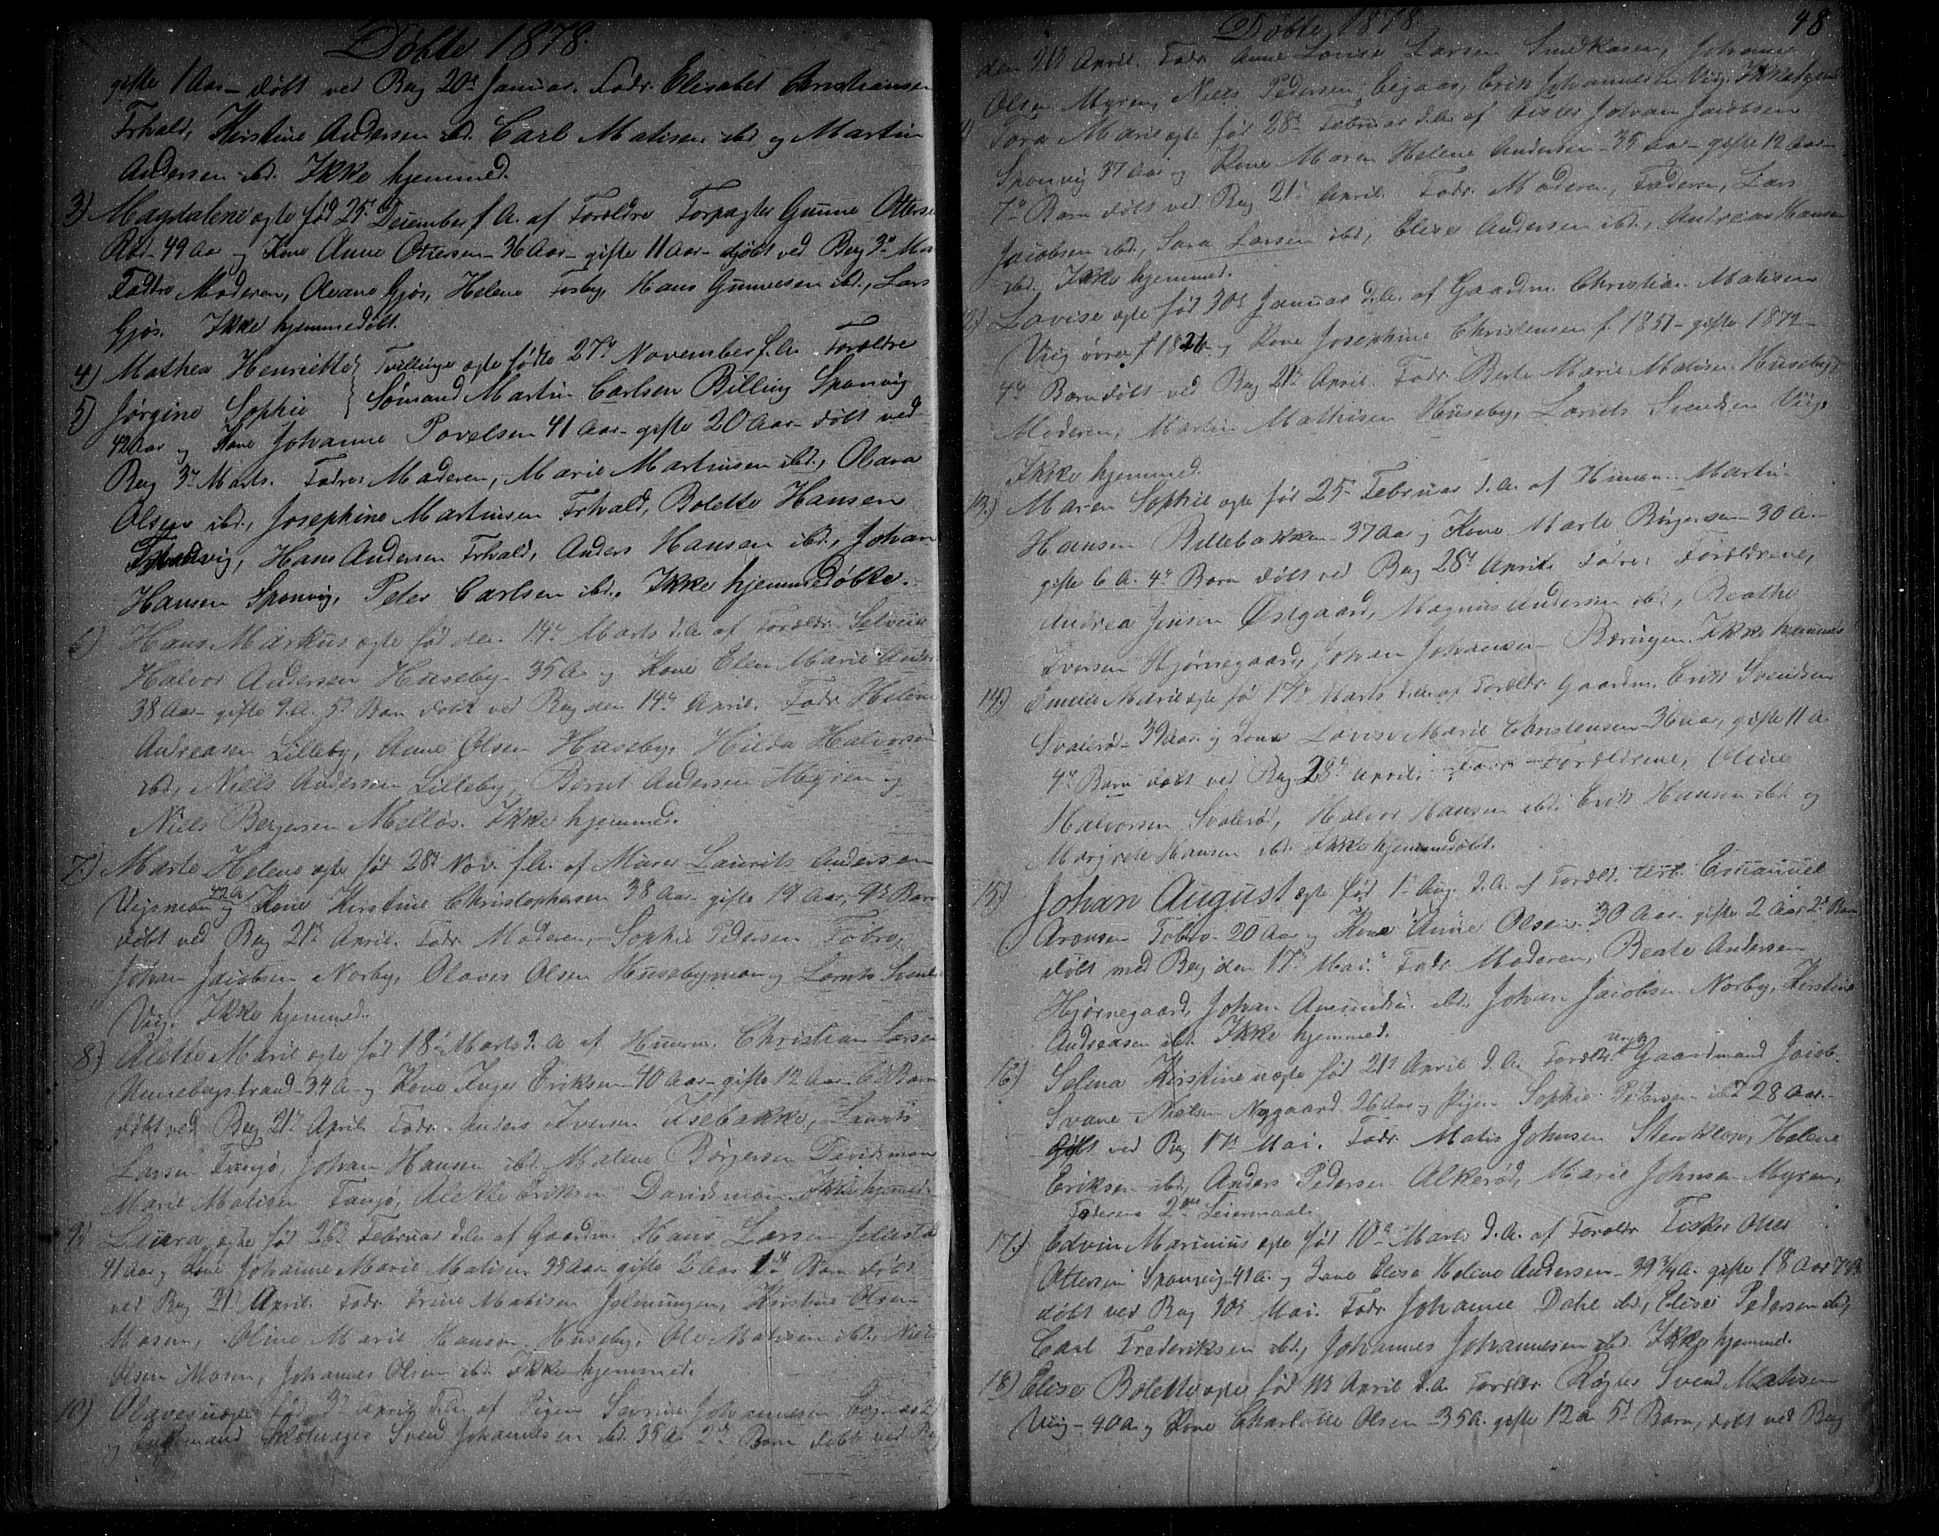 Døbte 1878.
gifte 1 Aar - døbt ved Berg 20de Januar. Fadr. Elisabet Christiansen
Trhald, Kirstine Andersen ibd. Carl Matisen ibd og Martin
Andersen ibd. Ikke hjemmed.
3) Magdalene ægte fød 25de December f.A. af Forældre Forpagter Gunne Otters
Rød - 49 Aar og Kone Anne Ottersen - 36 Aar - gifte 11 Aar - døbt ved Berg 3de Ma
Faddre Moderen, Gjøs, Helene Torsby, Hans Gunnesen ibd., Lars
Gjøs. Ikke hjemmedøbt.
4) Mathea Henriette } Tvillinger ægte fødte 27de November f.A. Forældre
5) Jørgine Sophie } Sømand Martin Carlsen Billing Sponvig
42 Aar og Kone Johanne Povelsen 41 Aar - gifte 20 Aar - døbt ved
Berg 3de Marts. Fadre: Moderen, Marie Martinsen ibd., Olava
Olsen ibd., Josephine Martinsen Trhald, Bolette Hansen
Hans Andersen Trhald, Anders Hansen ibd., Johan
Hansen Sponvig, Peter Carlsen ibd., Ikke hjemmedøbte.
6) Hans Markus ægte fød den 14de Marts d.A. af Forældr. Selveier
Halvor Andersen Huseby - 35 A. og Kone Elen Marie Anders
38 Aar - gifte 9 A. 5te Barn døbt ved Berg den 14de April. Fadr. Helene
Andreasen Lilleby, Anne Olsen Huseby, Hilda Halvorsen
ibd., Niels Andersen Lilleby, Bernt Andersen Myren og
Niels Bergersen Melløs. Ikke hjemmed.
7.) Marte Helene ægte fød 28de Nov. f.A. af Murer Laurits Andersen
42 A.
og Kone Kirstine Christophersen 38 Aar gifte 19 Aar, 9de Barn
døbt ved Berg 21de April. Fadr. Moderen, Sophie Pedersen Tobro,
Johan Jacobsen Norby, Olaves Olsen Husebymoen og
Viig. Ikke hjemmed.
8) Alette Marie ægte fød 18de Marts d.A. af Husm. Christian Larsen
34 A. og Kone Inger Eriksen 40 Aar - gifte 12 Aar - 6te Barn
døbt ved Berg 21de April. Fadr. Anders Iversen Isebakke, Laurits
Larsen Tangø, Johan Hansen ibd. Malene Børgersen Davidsmoen
Marie Matisen Tangø, Alette Eriksen Davidsmoen. Ikke hjemmed.
9) Laura ægte fød 26de Februar d.A. af Gaardm. Hans Larsen
41 Aar og Kone Johanne Marie Matisen 35 Aar gifte 2 Aar 1ste Barn døbt
ved Berg 21de April. Fadr. Trine Matisen Kirstine Olsen
Mosen, Oline Marie Hansen Huseby, Ole Matisen ibd., Niels
Olsen Mosen, Johannes Olsen ibd. Ikke hjemmed.
10) Olaves uægte fød 3de April d.A. af Pigen Severine Johannesen
og Svend Johannesen ibd. 35 Aar 2det Barn døbt ved Berg
48
Døbte 1878.
den 21de April. Fadr. Anne Louise Larsen Smedkasen, Johanne
Olsen Myren, Niels Pedersen Eigaas, Erik Johannesen Viig. Ikke hjemmed.
Tora Marie ægte fød 28de Februar d.A. af Fisker Johan Jacobsen
Sponvig 37 Aar og Kone Maren Helene Andersen - 35 Aar - gifte 12 Aar -
7de Barn døbt ved Berg 21de April. Fadr. Moderen, Faderen, Lars
Jacobsen ibd., Sara Larsen ibd., Elise Andersen ibd., Andreas Hansen
ibd. Ikke hjemmed.
12) Lovise ægte fød 30te Januar d.A. af Gaardm. Christian Matisen
Viig øvre f. 1821 og Kone Josephine Christensen f. 1851 - gifte 1872 -
4de Barn døbt ved Berg 21de April. Fadr. Berte Marie Matisen Huseby,
Moderen, Martin Mathisen Huseby, Lorids Svendsen Viig.
Ikke hjemmed.
13.) Maren Sophie ægte fød 25de Februar d.A. af Husm. Martin
Hansen Billebakken - 37 Aar og Kone Marte Børgersen - 30 A. -
gifte 6 A. 4de Barn døbt ved Berg 28de April. Fadre: Forældrene,
Andrea Jensen Østgaard, Magnus Andersen ibd., Beathe
Iversen Hjørnegaard, Johan Johansen Bæringen. Ikke hjemmed.
14.) Emelie Marie ægte fød 17de Marts d.A. af Forældr. Gaardm. Erik Svendsen
Svalerød - 39 Aar og Kone Lovise Marie Christensen - 36 Aar, gifte 11 A.
4de Barn døbt ved Berg 28de April. Fadr. Forældrene, Oline
Halvorsen Svalerød, Halvor Hansen ibd. Erik Hansen ibd. og
Margrete Hansen ibd. Ikke hjemmedøbt.
15) Johan August ægte fød 1ste Aug. d.A. af Forældr. Emanuel
Aronsen Tobro - 20 Aar og Kone Anne Olsen - 30 Aar - gifte 2 Aar 2det Barn
døbt med Berg den 17de Mai. Fadr. Moderen, Beate Andersen
Hjørnegaard, Johan Amundsen ibd. Johan Jacobsen Norby, Kirstine
Andreasen ibd. Ikke hjemmed.
16) Selma Kirstine uægte fød 21de April d.A. Forældr. Gaardmand Jacob
Svane Nielsen Nygaard - 26 Aar og Pigen Sophie Pedersen ibd. 28 Aar. -
døbt ved Berg 17de Mai. Fadr. Matis Johnsen Stenkløv, Helene
Eriksen ibd., Anders Pedersen Alkerød, Marie Johnsen Myren,
Faderens 2det Leiermaal.
17.) Edvin Marinius ægte fød 10de Marts d.A. af Forældr. Fisker
Ottersen Sponvig - 41 A. og Kone Elise Helene Andersen - 39 3/4 A. gifte 18 Aar 7de B.
døbt ved Berg 30te Mai. Fadr. Johanne Dahl ibd., Elise Pedersen ibd.,
Carl Frederiksen ibd., Johannes Johannesen ibd. Ikke hjemmed.
18) Elise Bolette ægte fød April d.A. Forældr. Røgter Svend Matisen
Viig - 40 A. og Kone Charlotte Olsen - 35 A. gifte 12 A. 5te Barn, døbt ved Berg